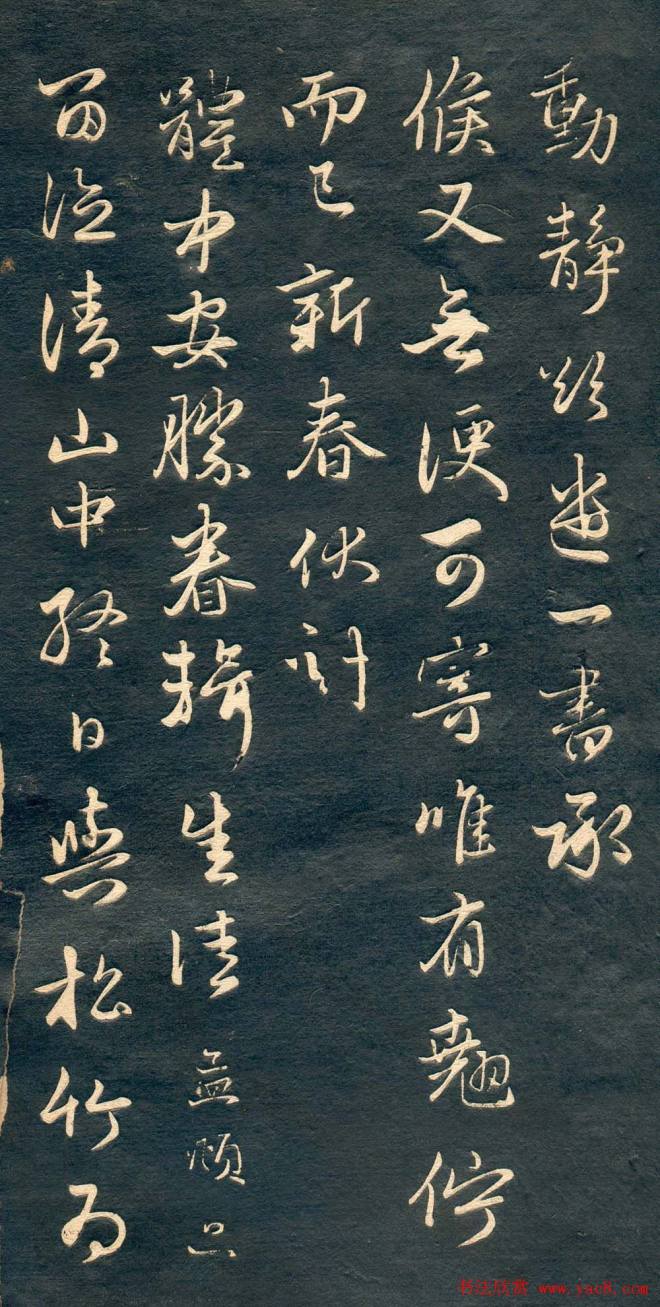 動靜欲遣一書承
候又無便可寄唯有翹佇
而已新春伏計
體中安勝眷輯生佳孟頫只
留德清山中終日與松竹為
书法欣赏 www.yac8.com